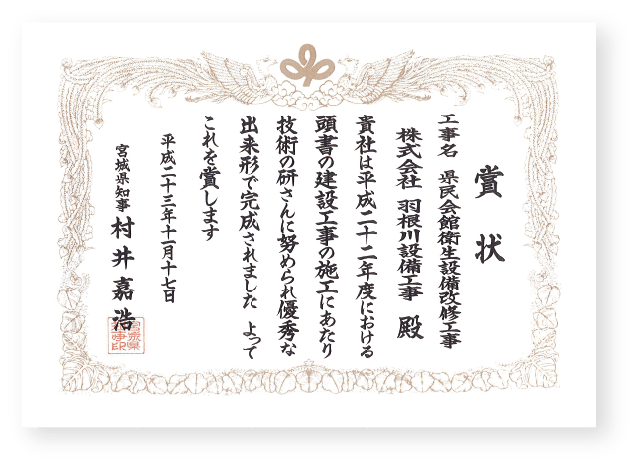 賞状
工事名 県民会館衛生設備改修工事
株式会社 羽根川設備工事 殿
貴社は平成二十二年度における
頭書の建設工事の施工にあたり
技術の研さんに努められ優秀な
出来形で完成されました よって
これを賞します
平成二十三年十一月十七日
宮城県知事 村井嘉浩